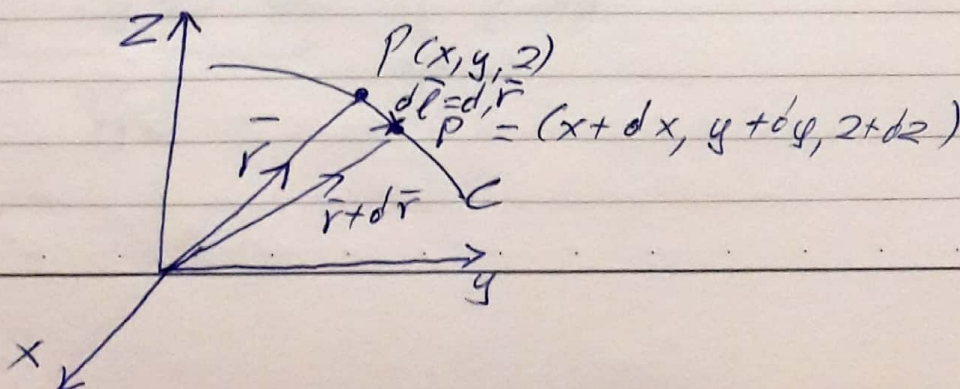 Z
P(x, y, z)
dl̄ = d r̄
P = (x + dx, y + dy, z + dz)
r̄
r̄ + d r̄
C
y
x